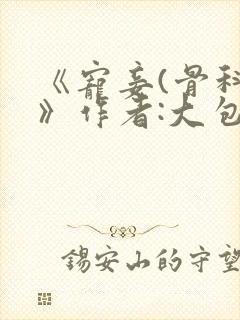 《寵妾(骨科
》作者:大包
錫安山的守望